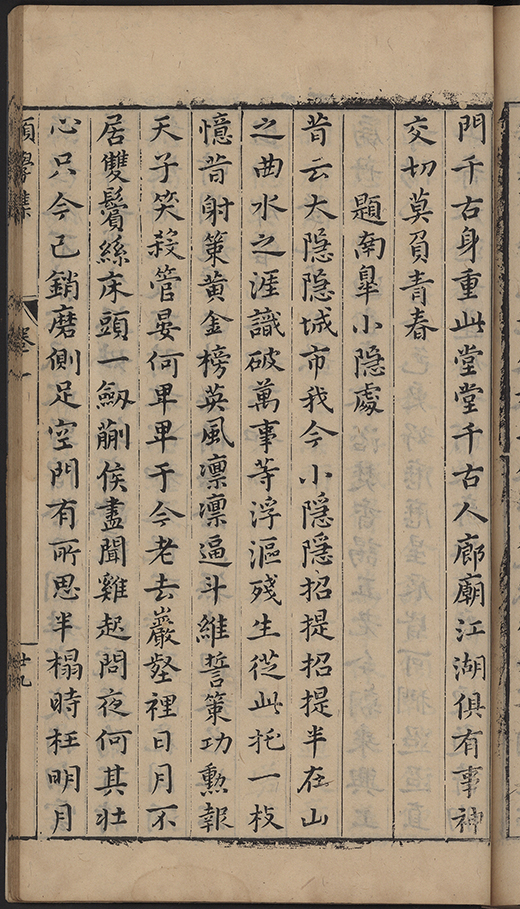 門千古身重此堂堂千古人廊廟江湖俱有事神
交切莫負青春
題南皐小隱處
昔云大隐隐城市我今小隱隱招提招提半在山
之曲水之涯識破萬事等浮漚殘生從此托一枝
憶昔射策黃金榜英風凛凛逼斗維誓策功勳報
天子笑殺管晏何卑卑于今老去巖壑裡日月不
居雙鬢絲床頭一劔蒯侯盡聞雞起問夜何其壯
心只今已銷磨側足空門有所思半榻時枉明月
學集
卷一
廿九